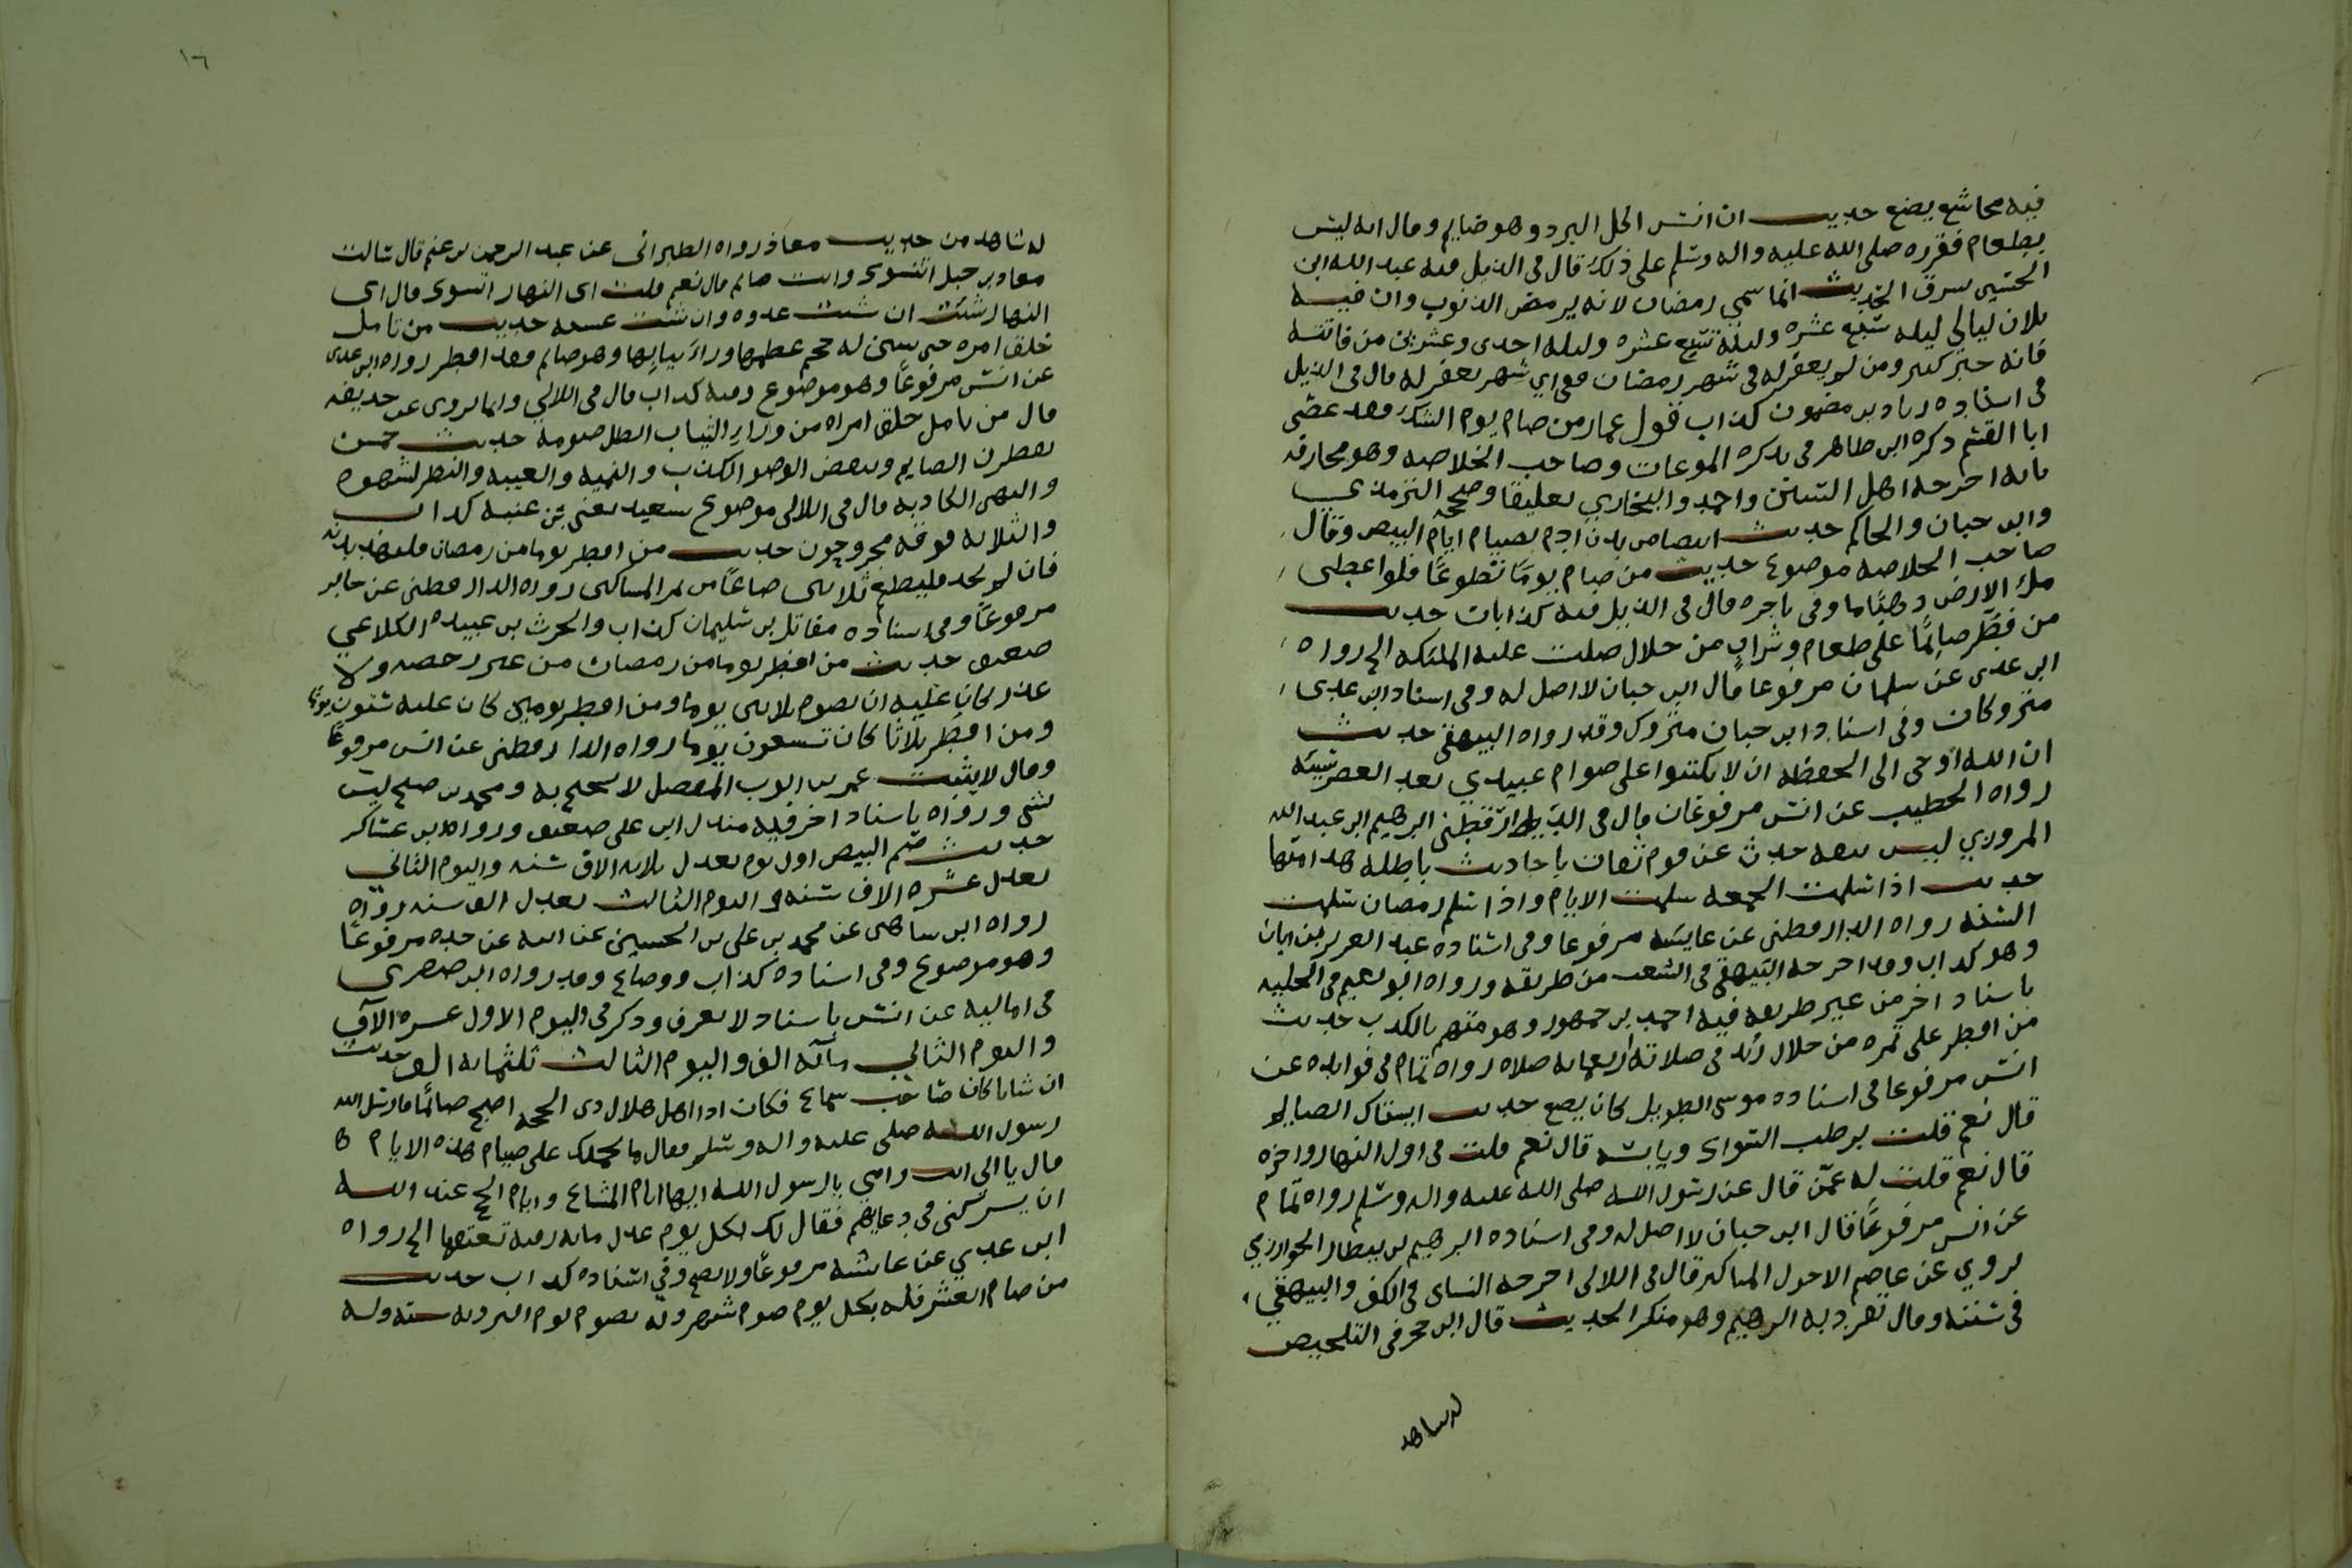 فيه مجاشع يضع حديث ان انس اكل البرد وهو صايم وقال انه ليس
بطعام فقرره صلى الله عليه واله وسلم على ذلك قال في الذيل فيه عبد الله ابن
الحسين يسرق الحديث انما سمي رمضان لانه يرمض الذنوب وان فيه
ثلاث ليالي ليله سبع عشره وليلة تسع عشره وليله احدى وعشرين من فاتته
فاته خير كثير ومن لم يغفر له في شهر رمضان ففي اي شهر يغفر له قال في الذيل
في اسناده زياد بن ميمون كذاب قول عمار من صام يوم الشك فقد عصى
ابا القسم ذكره ابن طاهر في تذكرة الموضوعات وصاحب الخلاصه وهو مجازفه
فانه اخرجه اهل السنن واحمد والبخاري تعليقا وصححه الترمذي
وابن حبان والحاكم حديث ابيضاض بدن ادم بصيام ايام البيض وقال
صاحب الخلاصه موضوع حديث من صام يوما تطوعا فلو اعطي
ملء الارض ذهبا ما وفى باجره قال في الذيل فيه كذابان حديث
من فطر صائما على طعام وشراب من حلال صلت عليه الملئكه الخ رواه
ابن عدي عن سلمان مرفوعا قال ابن حبان لا اصل له وفي اسناد ابن عدي
متروكان وفي اسناد ابن حبان متروك وقد رواه البيهقي حديث
ان الله اوحى الى الحفظه ان لا يكتبوا على صوام عبيدي بعد العصر سيئه
رواه الخطيب عن انس مرفوعا قال في الدارقطني ابرهيم ابن عبد الله
المروزي ليس بثقه حدث عن قوم ثقات باحاديث باطله هذا منها
حديث اذا سلمت الجمعه سلمت الايام واذا سلم رمضان سلمت
السنه رواه الدارقطني عن عايشه مرفوعا وفي اسناده عبد العزيز بن ابان
وهو كذاب وقد اخرجه البيهقي في الشعب من طريقه ورواه ابو نعيم في الحليه
باسناد اخر من غير طريقه فيه احمد بن جمهور وهو متهم بالكذب حديث
من افطر على تمره من حلال زيد في صلاته اربعمايه صلاه رواه تمام في فوايده عن
انس مرفوعا في اسناده موسى الطويل كان يضع حديث ايستاك الصايم
قال نعم قلت برطب السواك ويابسه قال نعم قلت في اول النهار واخره
قال نعم قلت له عمن قال عن رسول الله صلى الله عليه واله وسلم رواه تمام
عن انس مرفوعا قال ابن حبان لا اصل له وفي اسناده ابرهيم بن بيطار الخوارزمي
يروي عن عاصم الاحول المناكير قال في اللالى اخرجه النساى في الكنى والبيهقي
في سننه وقال تفرد به ابرهيم وهو منكر الحديث قال ابن حجر في التلخيص
له شاهد
١٦
له شاهد من حديث معاذ رواه الطبراني عن عبد الرحمن بن غنم قال سالت
معاذ بن جبل اتسوك وانت صائم قال نعم قلت اي النهار اتسوك قال اي
النهار شئت ان شئت غدوه وان شئت عشيه حديث من تامل
خلق امراه حتى يتبين له حجم عظمها وراء ثيابها وهو صائم فقد افطر رواه ابن عدي
عن انس مرفوعا وهو موضوع وفيه كذاب قال في اللالي وانما يروى عن حذيفه
قال من تامل خلق امراه من وراء الثياب ابطل صومه حديث خمس
يفطرن الصايم وينقض الوضو الكذب والنميمه والغيبه والنظر لشهوه
واليمين الكاذبه قال في اللالى موضوع سعيد يعني بن عنبسه كذاب
والثلاثه فوقه مجروحون حديث من افطر يوما من رمضان فليهد بدنه
فان لم يجد فليطعم ثلاثين صاعا من تمر المساكين رواه الدارقطني عن جابر
مرفوعا وفي اسناده مقاتل بن سليمان كذاب والحرث بن عبيده الكلاعي
ضعيف حديث من افطر يوما من رمضان من غير رخصه ولا
عذر كان عليه ان يصوم ثلاثين يوما ومن افطر يومين كان عليه ستون يوما
ومن افطر ثلاثا كان تسعون يوما رواه الدارقطني عن انس مرفوعا
وقال لا يثبت عمر بن ايوب الموصلي لا يحتج به ومحمد بن صبيح ليس
بشي ورواه باسناد اخر فيه مندل ابن على ضعيف ورواه ابن عساكر
حديث صم البيض اول يوم يعدل ثلاثه الاف سنه واليوم الثاني
يعدل عشره الاف سنه واليوم الثالث يعدل الف سنه رواه
رواه ابن شاهين عن محمد بن علي بن الحسين عن ابيه عن جده مرفوعا
وهو موضوع وفي اسناده كذاب ووضاع وقد رواه ابن صصرى
في اماليه عن انس باسناد لا يعرف وذكر في اليوم الاول عشره الاف
واليوم الثاني مائه الف واليوم الثالث ثلثمائه الف حديث
ان شابا كان صاحب سماع فكان اذا اهل هلال ذي الحجه اصبح صائما فارسل الله
رسول الله صلى عليه واله وسلم فقال ما يحملك على صيام هذه الايام
قال بابي انت وامي يا رسول الله انها ايام المشاعر وايام الحج عسى الله
ان يشركني في دعايهم فقال لك بكل يوم عدل مائه رقبه تعتقها الخ رواه
ابن عدي عن عائشه مرفوعا ولا يصح وفي اسناده كذاب حديث
من صام العشر فله بكل يوم صوم شهر وله بصوم يوم الترويه سنه وله